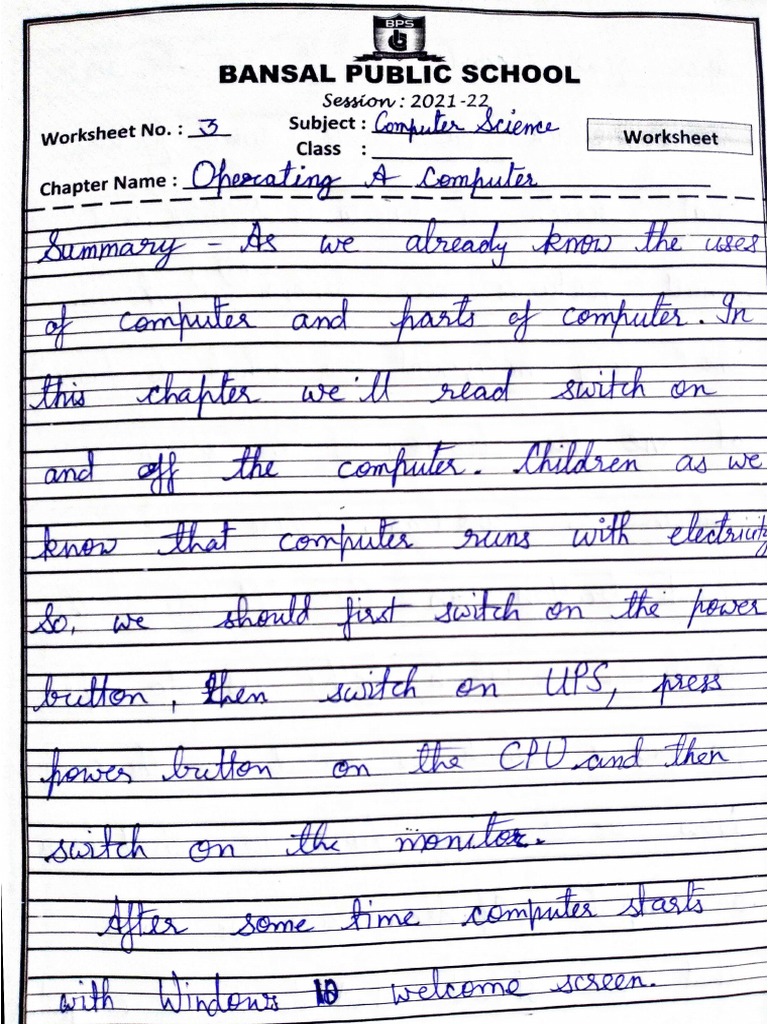 BPS
BANSAL PUBLIC SCHOOL
Session : 2021-22
Worksheet No. : 3
Subject : Computer Science
Class :
Worksheet
Chapter Name : Operating A Computer
Summary - As we already know the uses
of computer and parts of computer. In
this chapter we'll read switch on
and off the computer. Children as we
know that computer runs with electricity
So, we should first switch on the power
button, then switch on UPS, press
power button on the CPU and then
switch on the monitor.
After some time computer starts
with Windows 10 welcome screen.